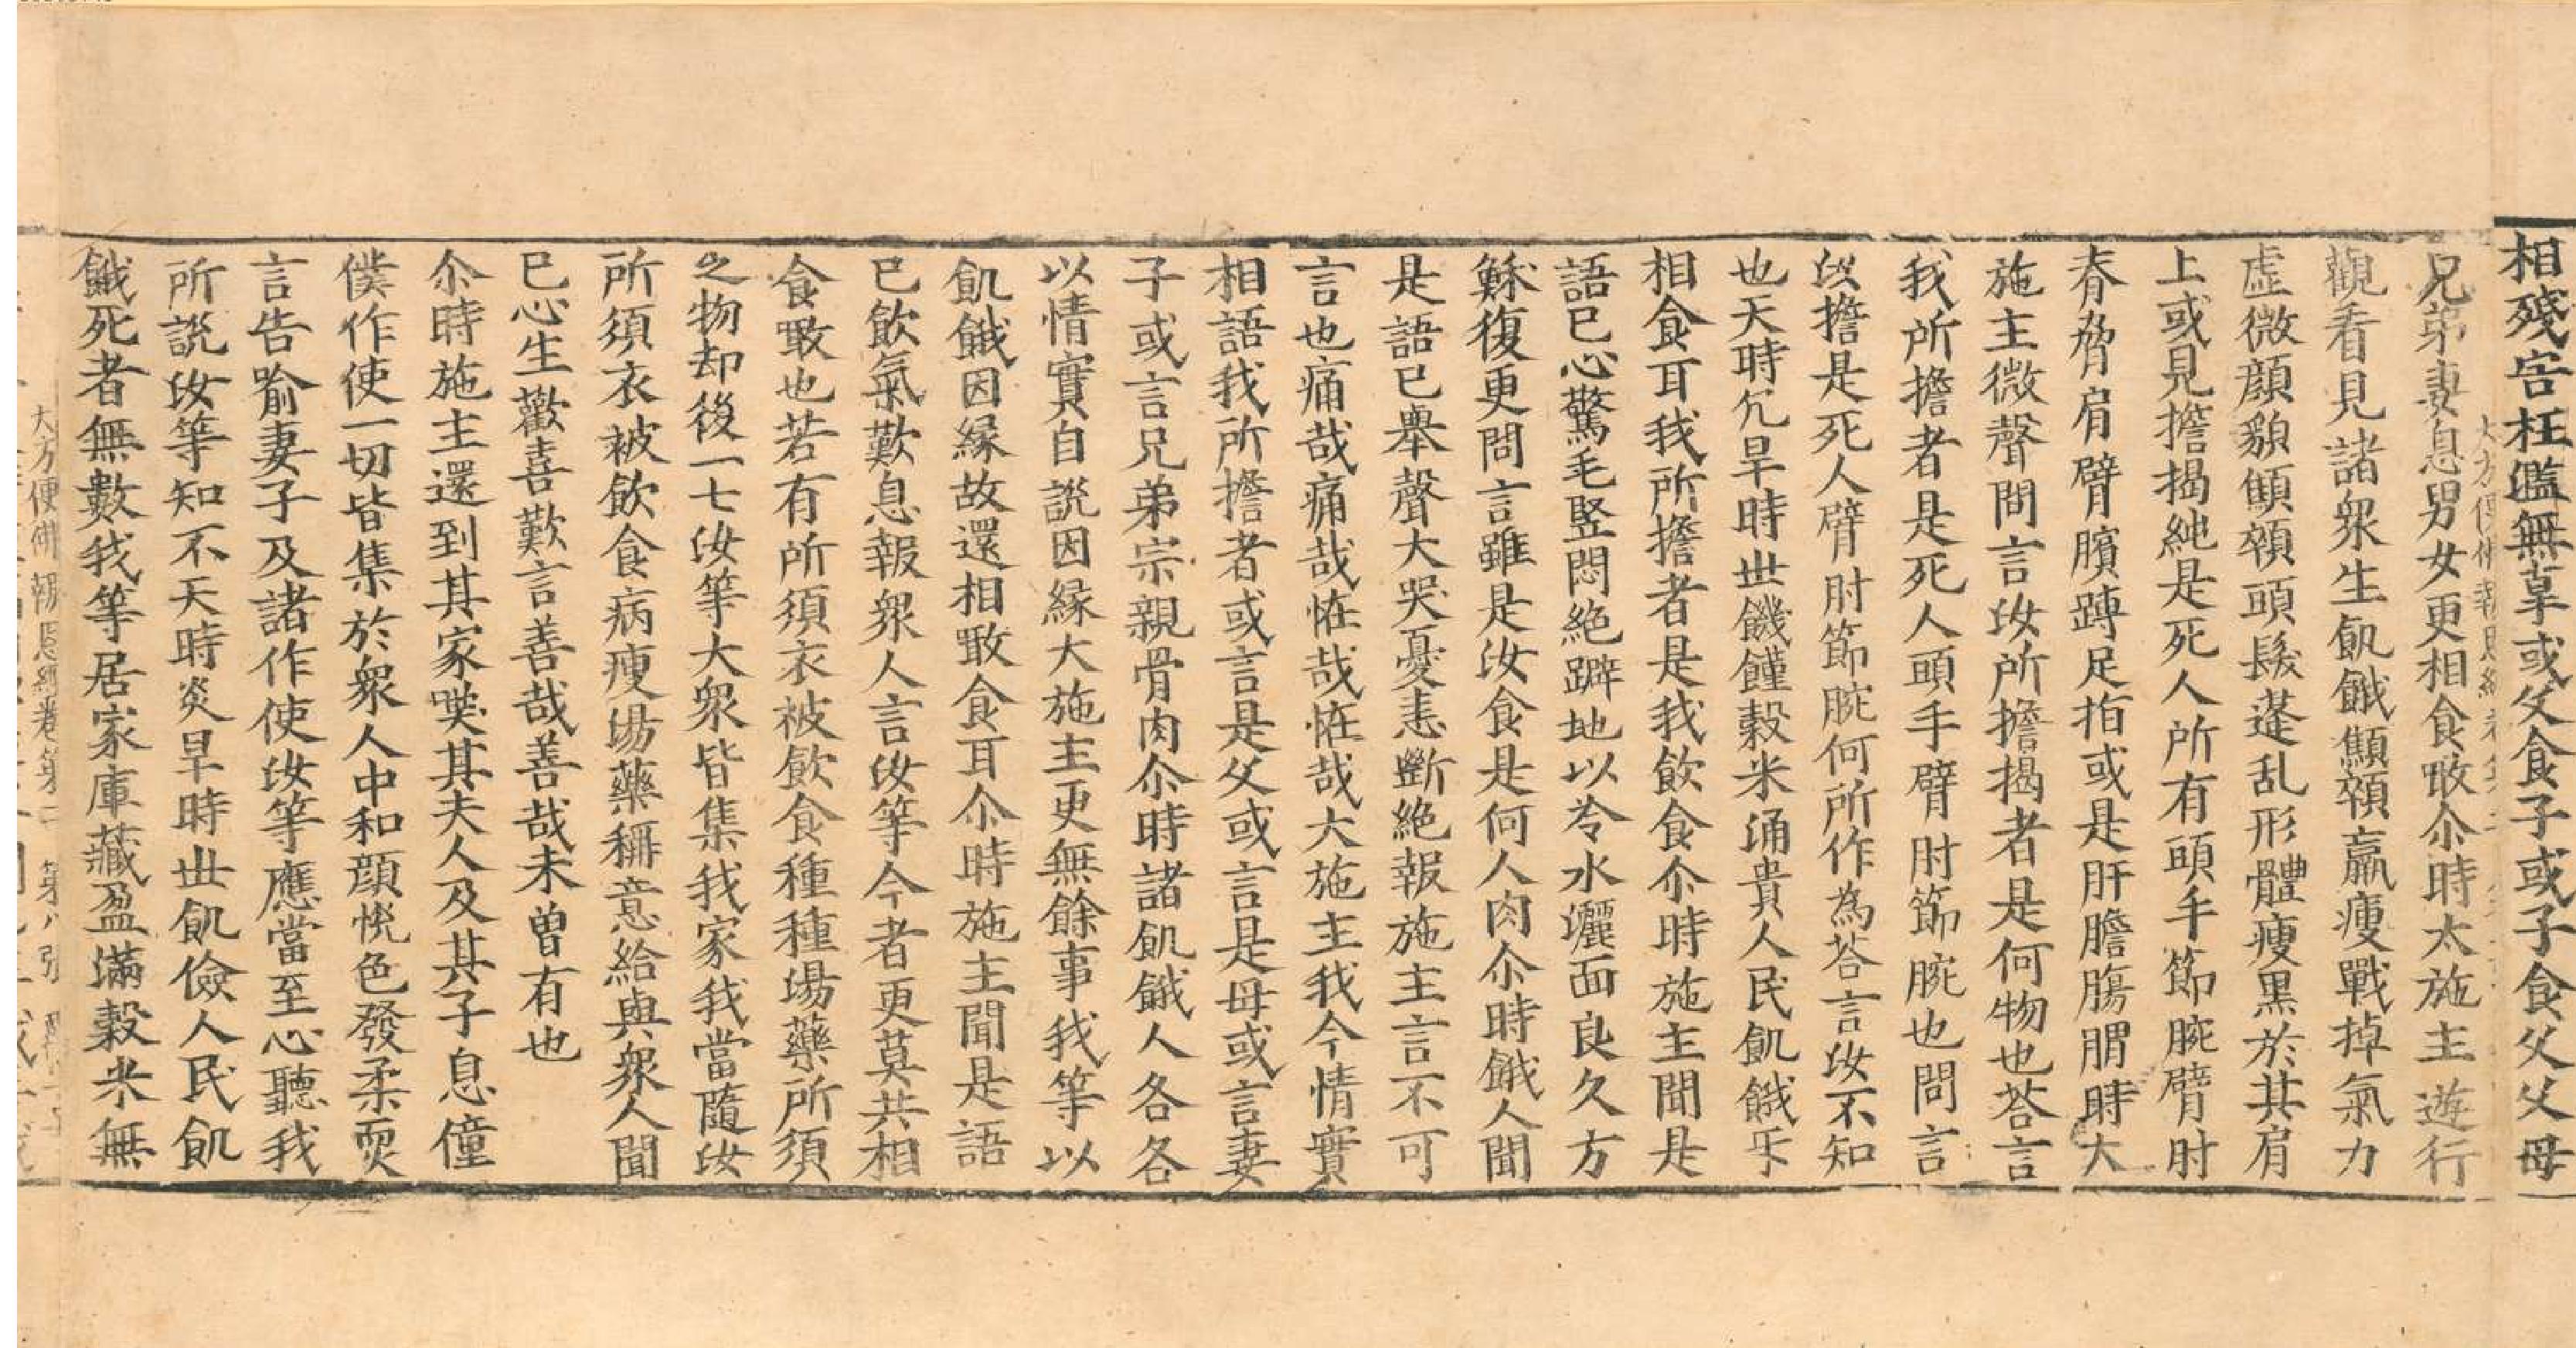 相殘害枉濫無辜或父食子或子食父父母
兄弟妻息男女更相食噉尒時大施主遊行
觀看見諸衆生飢餓顦顇羸瘦戰掉氣力
虛微顏貌顦顇頭髮蓬乱形體瘦黑於其肩
上或見擔揭純是死人所有頭手節腕臂肘
脊脅肩臂髕蹲足指或是肝膽腸胃時大
施主微聲問言汝所擔揭者是何物也荅言
我所擔者是死人頭手臂肘節腕也問言
汝擔是死人臂肘節腕何所作為荅言汝不知
也天時亢旱時世饑饉穀米涌貴人民飢餓乎
相食耳我所擔者是我飲食尒時施主聞是
語已心驚毛竪悶絶躃地以冷水灑面良久方
穌復更問言雖是汝食是何人肉尒時餓人聞
是語已舉聲大哭憂恚斷絶報施主言不可
言也痛哉痛哉恠哉恠哉大施主我今情實
相語我所擔者或言是父或言是母或言妻
子或言兄弟宗親骨肉尒時諸飢餓人各各
以情實自說因緣大施主更無餘事我等以
飢餓因緣故還相噉食耳尒時施主聞是語
已飲氣歎息報衆人言汝等今者更莫共相
食噉也若有所須衣被飲食種種湯藥所須
之物却後一七汝等大衆皆集我家我當隨汝
所須衣被飲食病瘦湯藥稱意給與衆人聞
已心生歡喜歎言善哉善哉未曾有也
尒時施主還到其家嘆其夫人及其子息僮
僕作使一切皆集於衆人中和顏悅色發柔耎
言告喻妻子及諸作使汝等應當至心聽我
所說汝等知不天時炎旱時世飢儉人民飢
餓死者無數我等居家庫藏盈滿穀米無
大方便佛報恩經卷第二 第八張